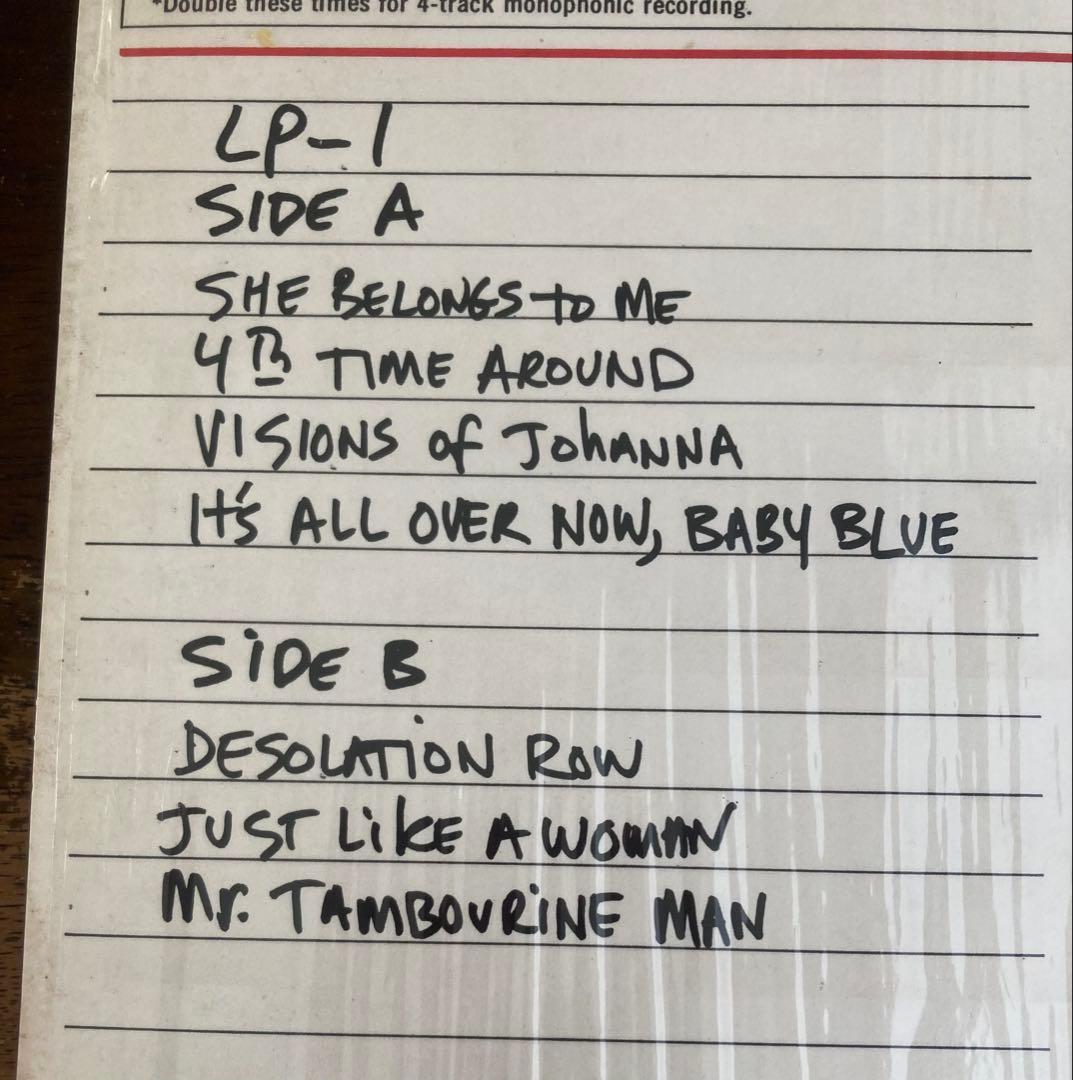 *Double these times for 4-track monophonic recording.
LP-1
SIDE A
SHE BELONGS to ME
4TH TIME AROUND
VISIONS of JohANNA
It's ALL OVER NOW, BABY BLUE
SiDE B
DESOLATiON ROW
JUST LikE A WOMAN
Mr. TAMBOURiNE MAN